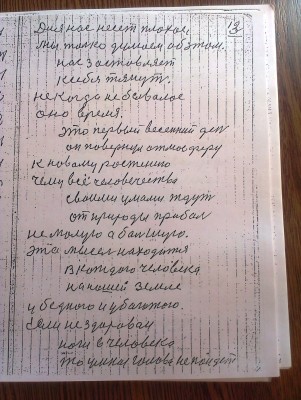 13
Для нас несет плохое,
мы только думаем об этом.
нас заставляет
к себе тянут.
некогда небывалое
оно время.
это первый весенний ден
он повернул атмосферу
к новому ростению
чем всё человечества
своими умами ждут
от природы прибал
не малую а большую.
эта мысел находится
в каждого человека
на нашей земле
у бедного и у богатого.
если не здороваи
ноги в человека
то умная голова не пойдет